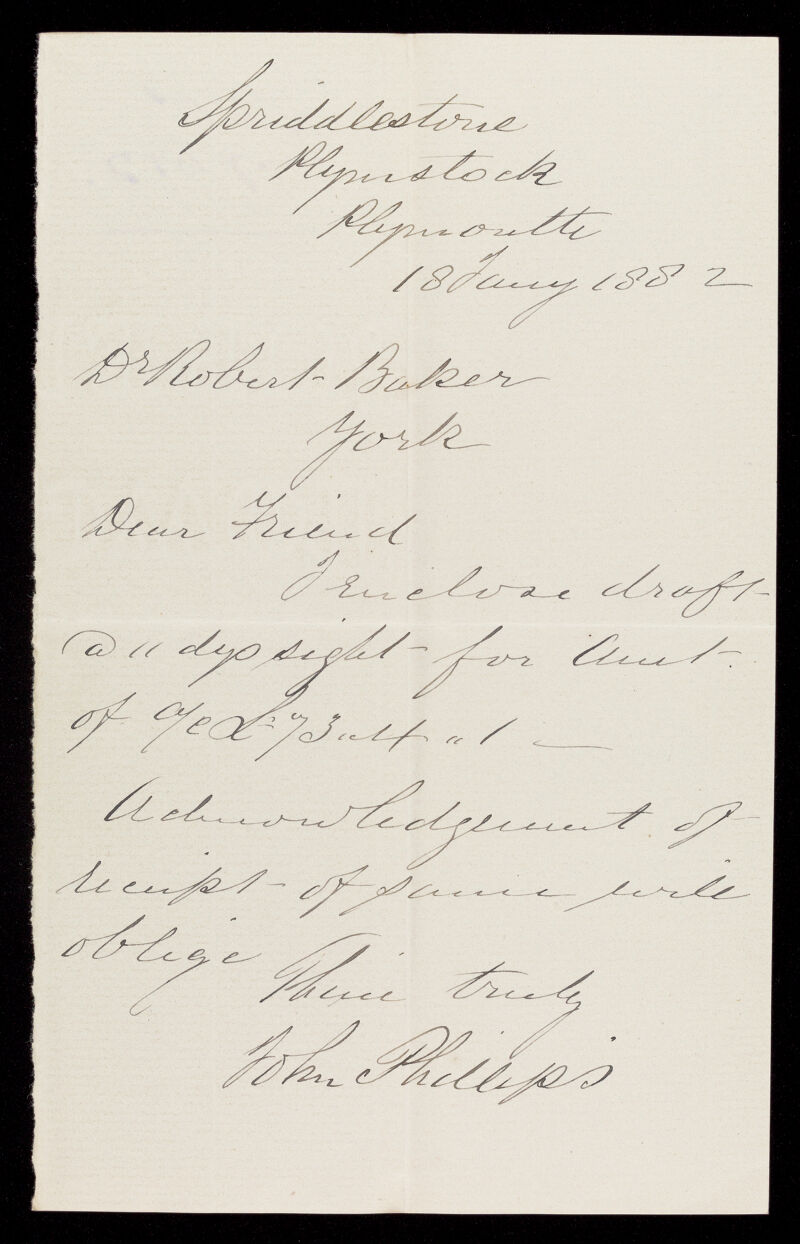 Spriddlestone
Plymstock
Plymouth
18 Jany 1882
Dr Robert Baker
York
Dear Friend
I Enclose draft
@ 11 dys sight for Amt.
of a/c £ 73 " 4 " 1 —
Acknowledgement of
receipt of same will
oblige
Thine truly
John Phillips